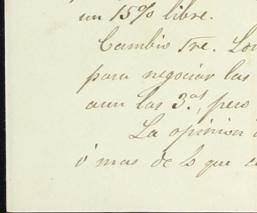 un 15% libre.
Cambio Fre. Lon
para negociar las
aun las 3.as, pero
La opinion
ó mas de lo que